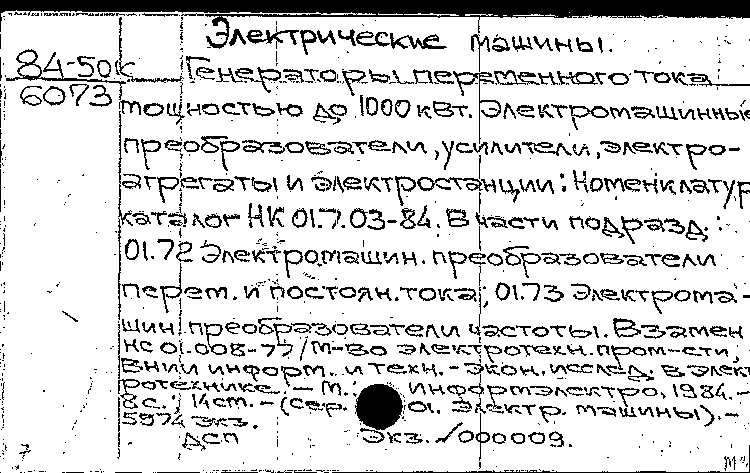 Электрические машины.
84-50к
6073
Генераторы переменного тока
мощностью до 1000 квт. Электромашинные
преобразователи, усилители, электро-
агрегаты и электростанции: Номенклатур
каталог НК 01.7.03-84. В части подразд.:
01.72 Электромашин. преобразователи
перем. и постоян. тока; 01.73 Электрома-
шин. преобразователи частоты. Взамен
НС 01.008-77/М-во электротехн. пром-сти,
ВНИИ информ. и техн.-экон. исслед. в элект
ротехнике. – М.: Информэлектро, 1984. –
8с.; 14см. – (Сер. 01. Электр. машины). –
5974 экз.
ДСП Экз. √000009.
7